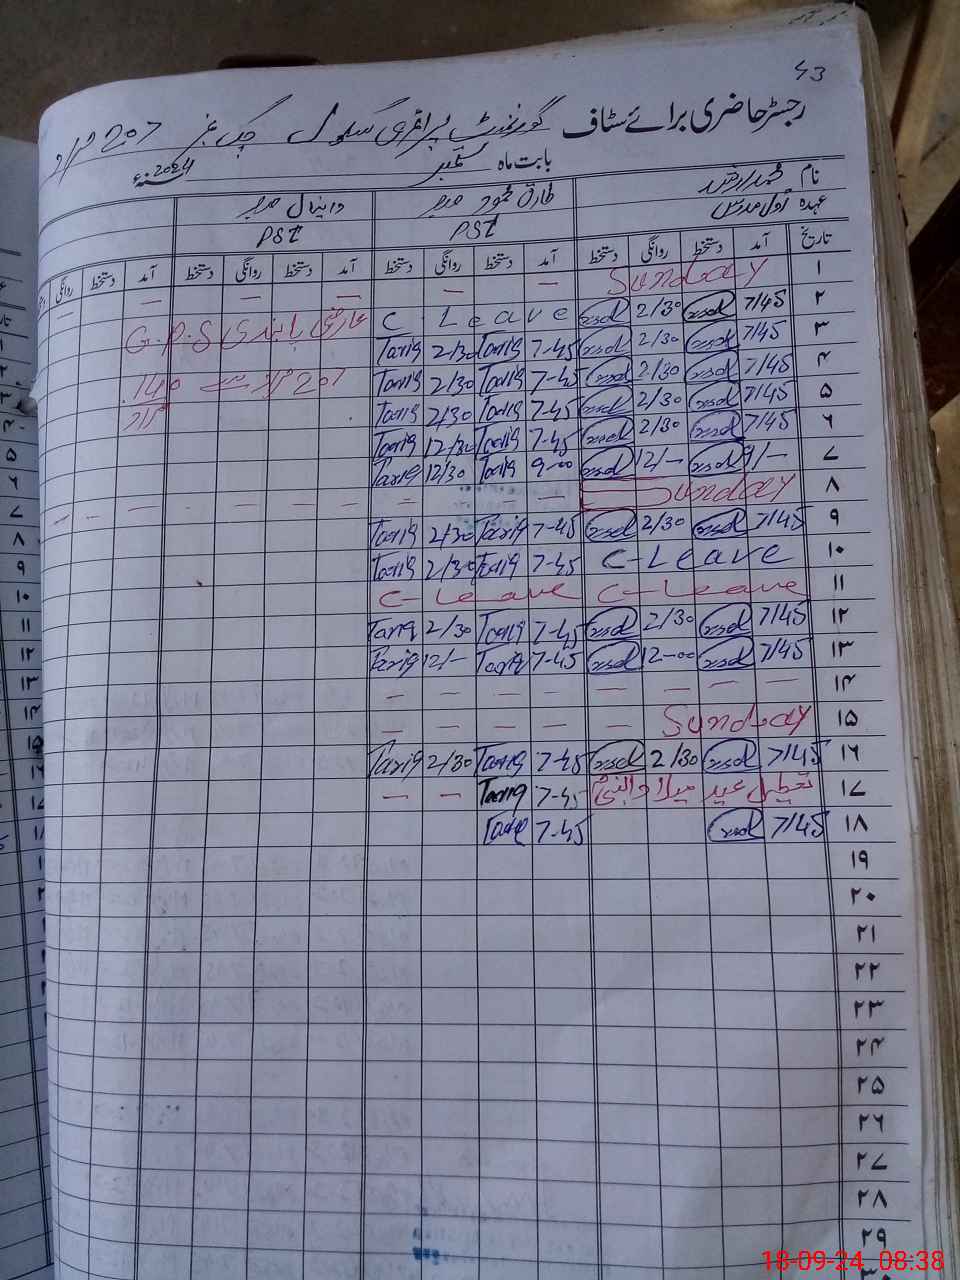 43
رجسٹر حاضری برائے سٹاف گورنمنٹ پرائمری سکول چک نمبر 207
بابت ماہ ستمبر 2024ء
نام محمد ارشد طارق محمود دانیال
عہدہ اول مدرس PST PST
تاریخ آمد دستخط روانگی دستخط آمد دستخط روانگی دستخط آمد دستخط روانگی دستخط آمد دستخط روانگی
۱ Sunday — — — —
۲ 7/45 2/30 C. Leave
۳ 7/45 2/30 7-45 Tariq 2/30 Tariq
۴ 7/45 2/30 7-45 Tariq 2/30 Tariq
۵ 7/45 2/30 7-45 Tariq 2/30 Tariq
۶ 7/45 2/30 7-45 Tariq 12/30 Tariq
۷ 9/— 12/— 9-00 Tariq 12/30 Tariq
عارضی پابندی G.P.S
207 سے 140
۸ Sunday — — — —
۹ 7/45 2/30 7-45 Tariq 2/30 Tariq
۱۰ C-Leave 7-45 Tariq 2/30 Tariq
۱۱ C-Leave C-Leave
۱۲ 7/45 2/30 7-45 Tariq 2/30 Tariq
۱۳ 7/45 12-00 7-45 Tariq 12/— Tariq
۱۴ — — — — — — — —
۱۵ Sunday — — — — —
۱۶ 7/45 2/30 7-45 Tariq 2/30 Tariq
۱۷ تعطیل عید میلاد النبیؐ 7-45 Tariq — —
۱۸ 7/45 7-45 Tariq
۱۹
۲۰
۲۱
۲۲
۲۳
۲۴
۲۵
۲۶
۲۷
۲۸
۲۹
18-09-24 08:38